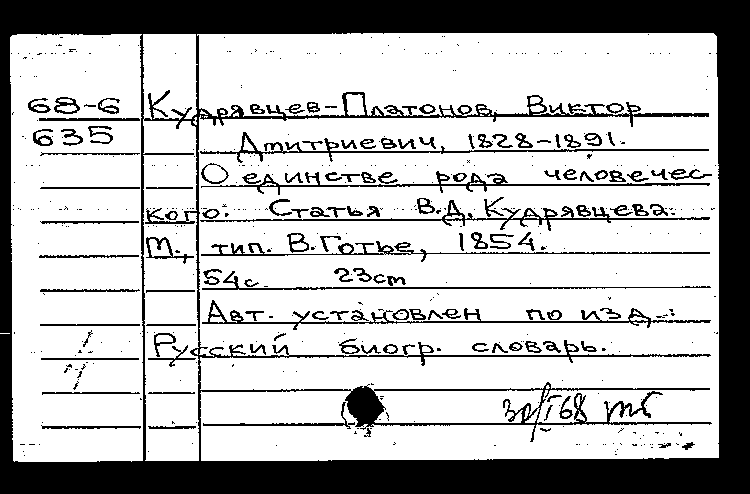 68-6 Кудрявцев-Платонов, Виктор
635 Дмитриевич, 1828-1891.
О единстве рода человечес-
кого. Статья В.Д. Кудрявцева.
М., тип. В. Готье, 1854.
54с. 23cm
Авт. установлен по изд.:
Русский биогр. словарь.
30/I 68